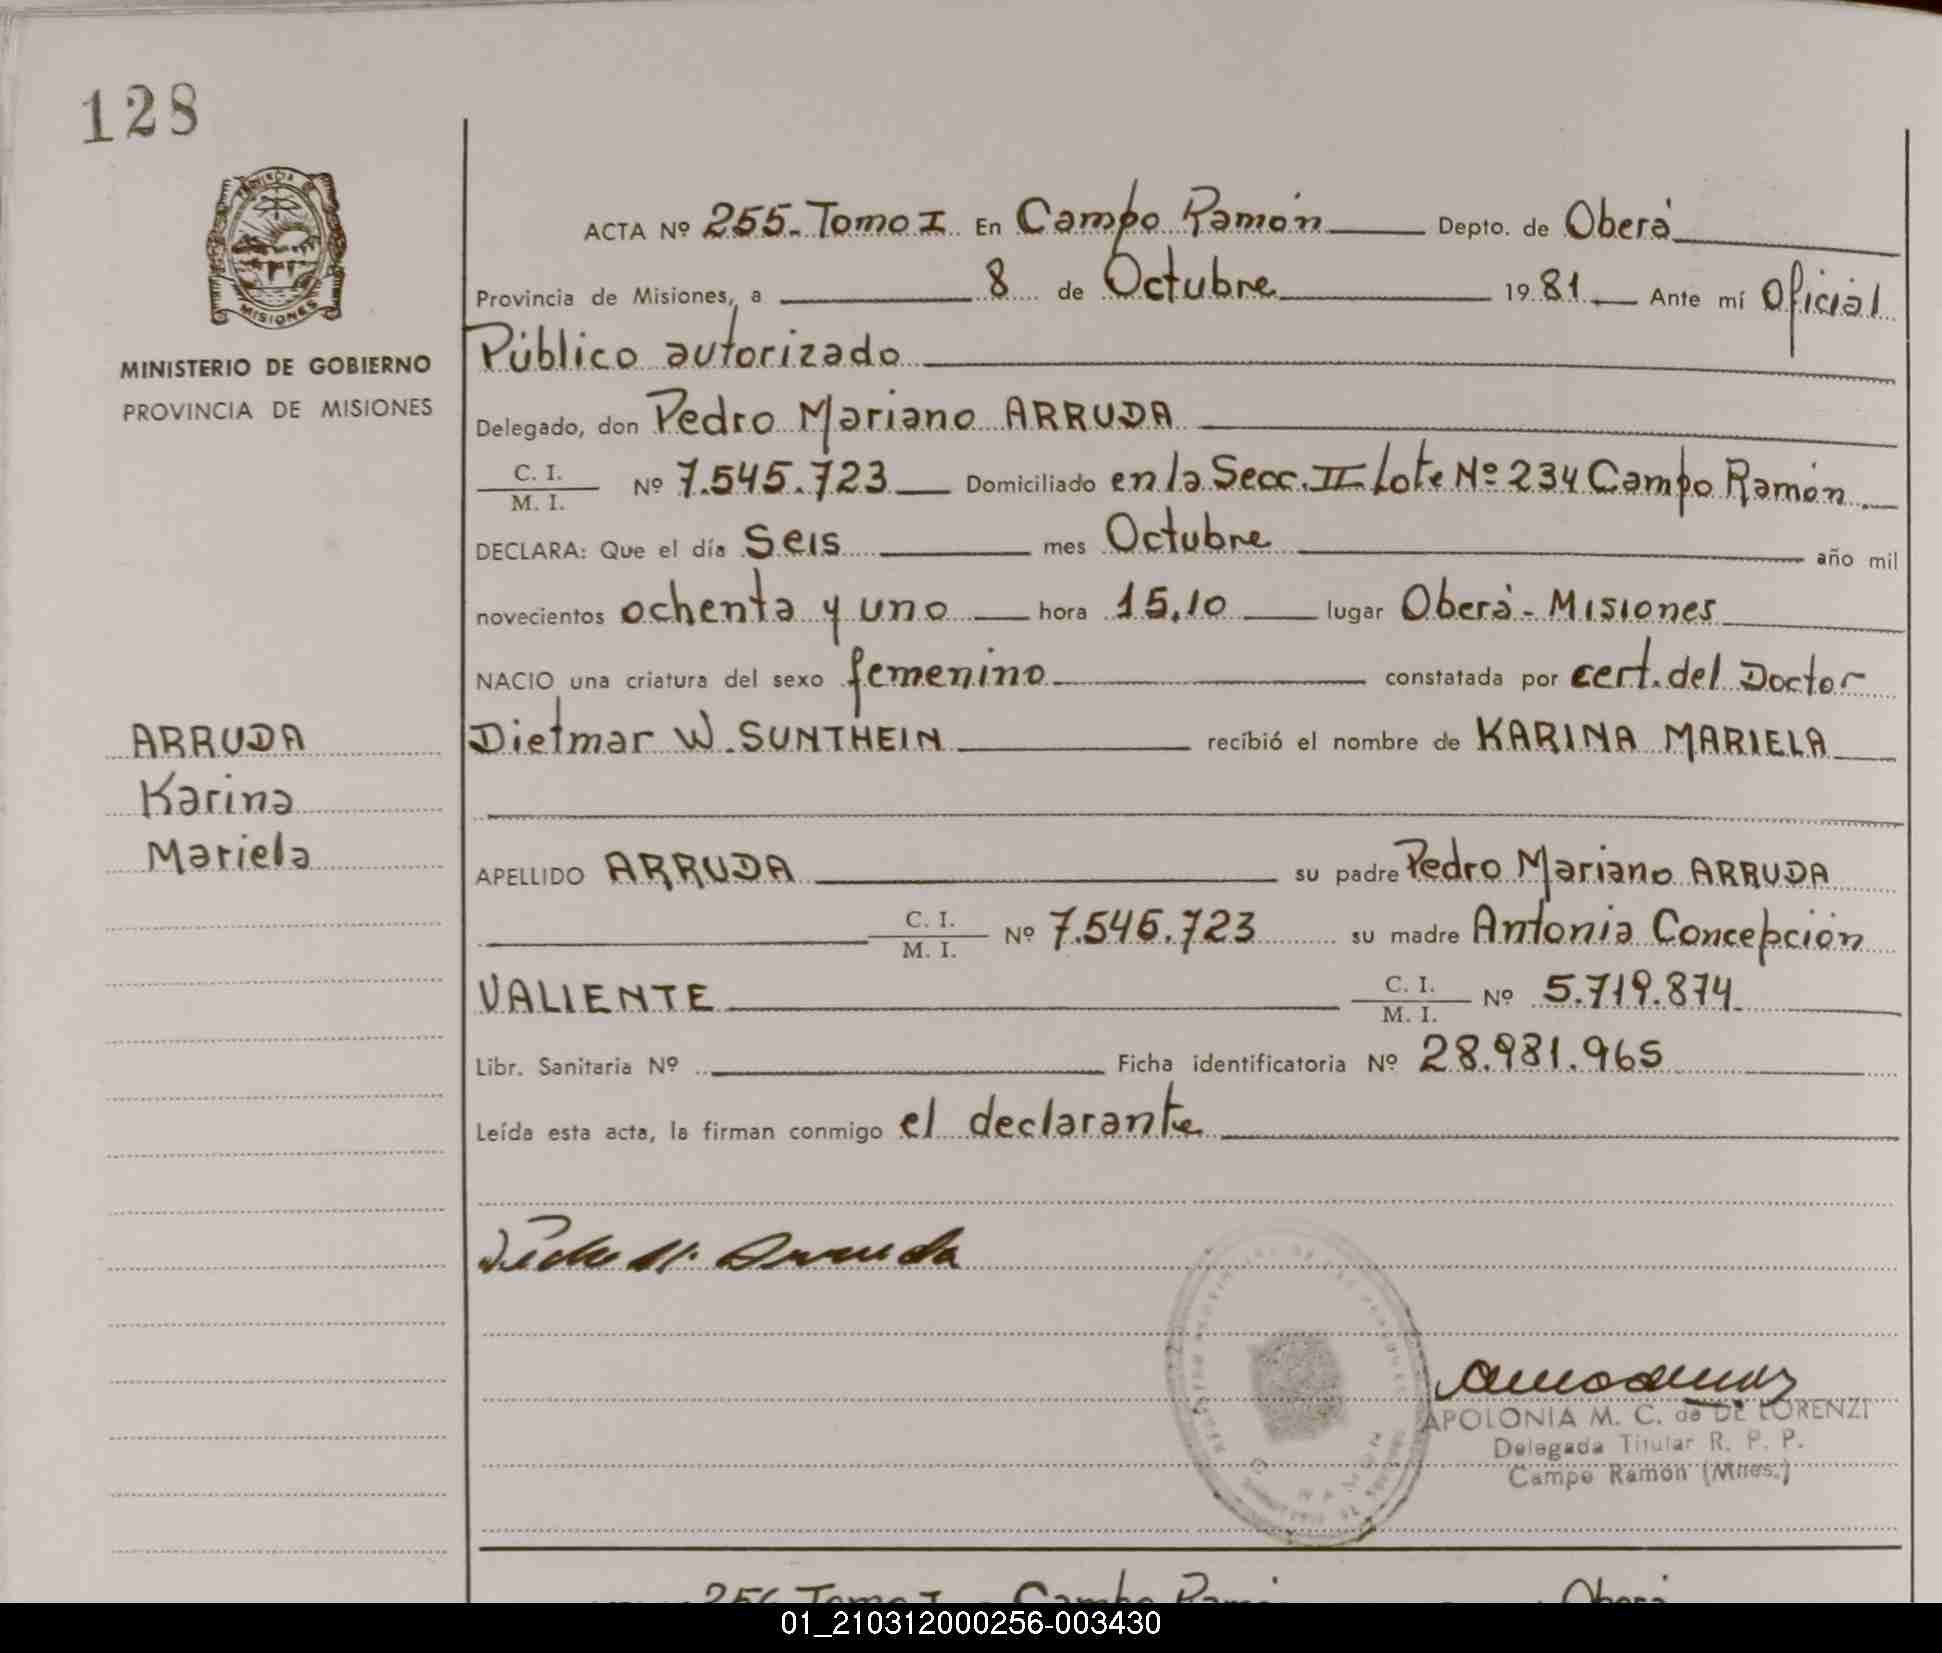 128
PROVINCIA DE
MISIONES
MINISTERIO DE GOBIERNO
PROVINCIA DE MISIONES
ARRUDA
Karina
Mariela
ACTA Nº 255. Tomo I En Campo Ramón Depto. de Oberá
Provincia de Misiones, a 8 de Octubre 1981 Ante mí Oficial
Público autorizado
Delegado, don Pedro Mariano ARRUDA
C. I.
M. I.
Nº 7.545.723 Domiciliado en la Secc. II Lote Nº 234 Campo Ramón
DECLARA: Que el día Seis mes Octubre año mil
novecientos ochenta y uno hora 15,10 lugar Oberá - Misiones
NACIO una criatura del sexo femenino constatada por cert. del Doctor
Dietmar W. SUNTHEIN recibió el nombre de KARINA MARIELA
APELLIDO ARRUDA su padre Pedro Mariano ARRUDA
C. I.
M. I.
Nº 7.545.723 su madre Antonia Concepción
VALIENTE
C. I.
M. I.
Nº 5.719.874
Libr. Sanitaria Nº Ficha identificatoria Nº 28.981.965
Leída esta acta, la firman conmigo el declarante
Pedro M. Arruda
APOLONIA M. C. de DE LORENZI
Delegada Titular R. P. P.
Campo Ramón (Mnes.)
256 Tomo I Campo Ramón Oberá
01_210312000256-003430